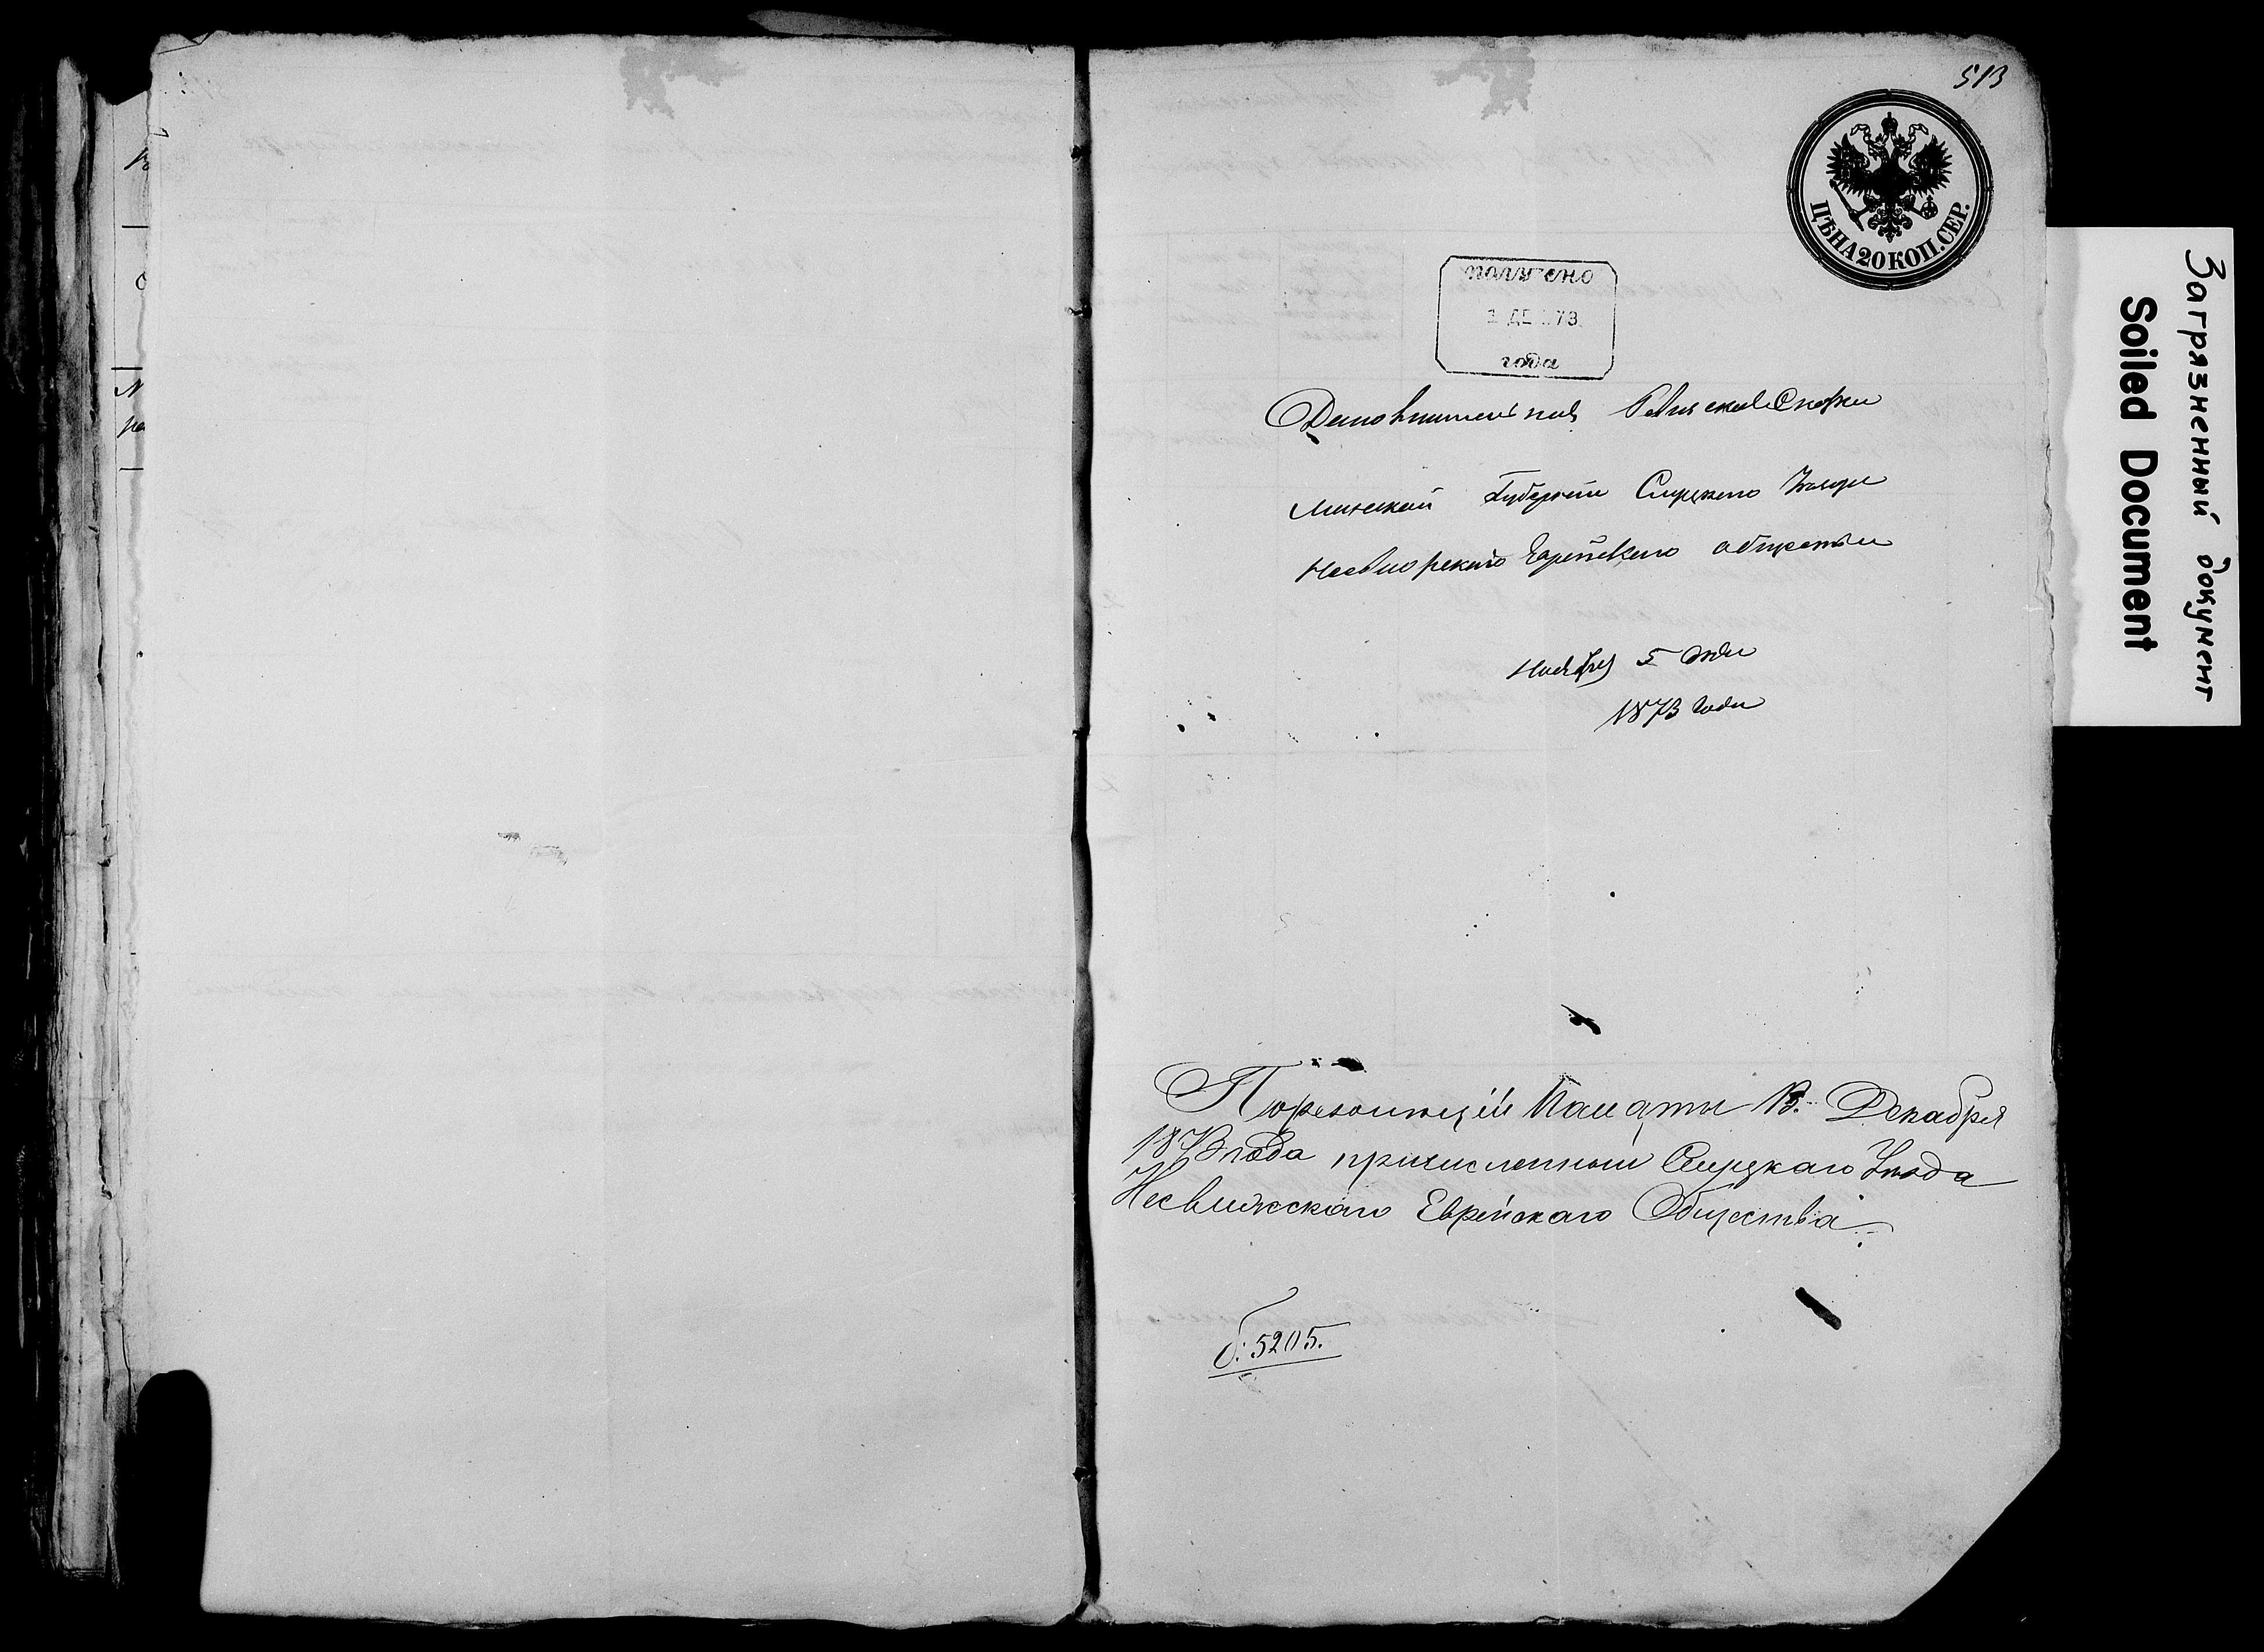 513
ЦѢНА 20 КОП. СЕР.
ПОЛУЧЕНО
3 ДЕ 873
года
Дополнительная Ревизская Сказка
Минской Губернии Слуцкаго Уезда
Еврейскаго общества
Ноября 5 дня
1873 года
По резолюции Палаты 13. Декабря
1873 года причисленный Слуцкаго Уезда
Несвижскаго Еврейскаго Общества
б: 5205.
Загрязненный документ
Soiled Document